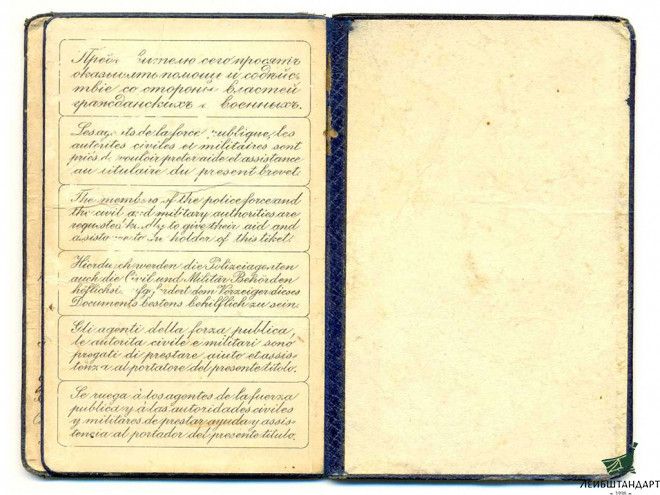 сего просятъ
оказывать помощи и содѣйс-
твіе со стороны властей
гражданскихъ и военныхъ.
Les de la force publique, les
autorités civiles et militaires sont
priés de vouloir preter aide et assistance
au titulaire du present brevet.
The members of the police force and
the civil and military authorities are
requisted to give their aid and
to holder of this tiket.
werden die Polizeiagenten
auch die Civil und Militär Behörden
dem Vorzeiger dieses
Documents bestens behilflich zu sein.
Gli agenti della forza publica,
le autorita civile e militari sono
pregati di prestare aiuto et assis-
tenza al portatore del presente titolo.
Se ruega á los agentes de la fuerza
publica y á las autoridades civiles
y militares de prestar ayuda y assis-
tencia al portador del presente titulo.
ЛЕЙБШТАНДАРТ